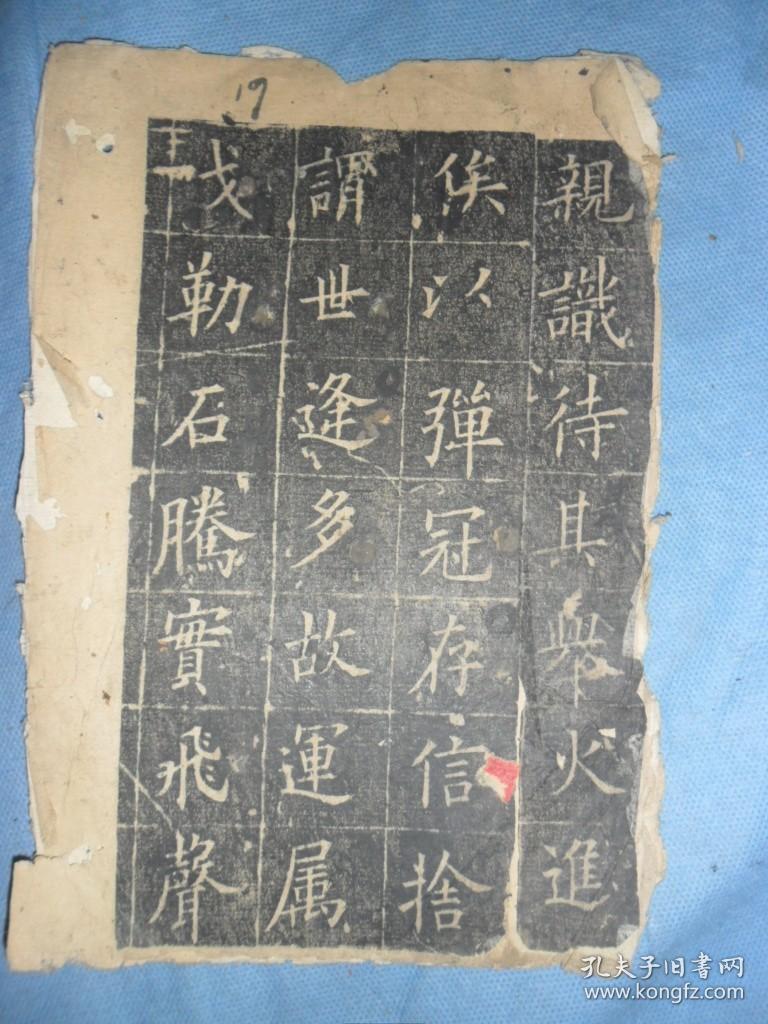 19
親識待其舉火進
俟以彈冠存信捨
謂世逢多故運属
戈勒石騰實飛聲
孔夫子旧書网
www.kongfz.com